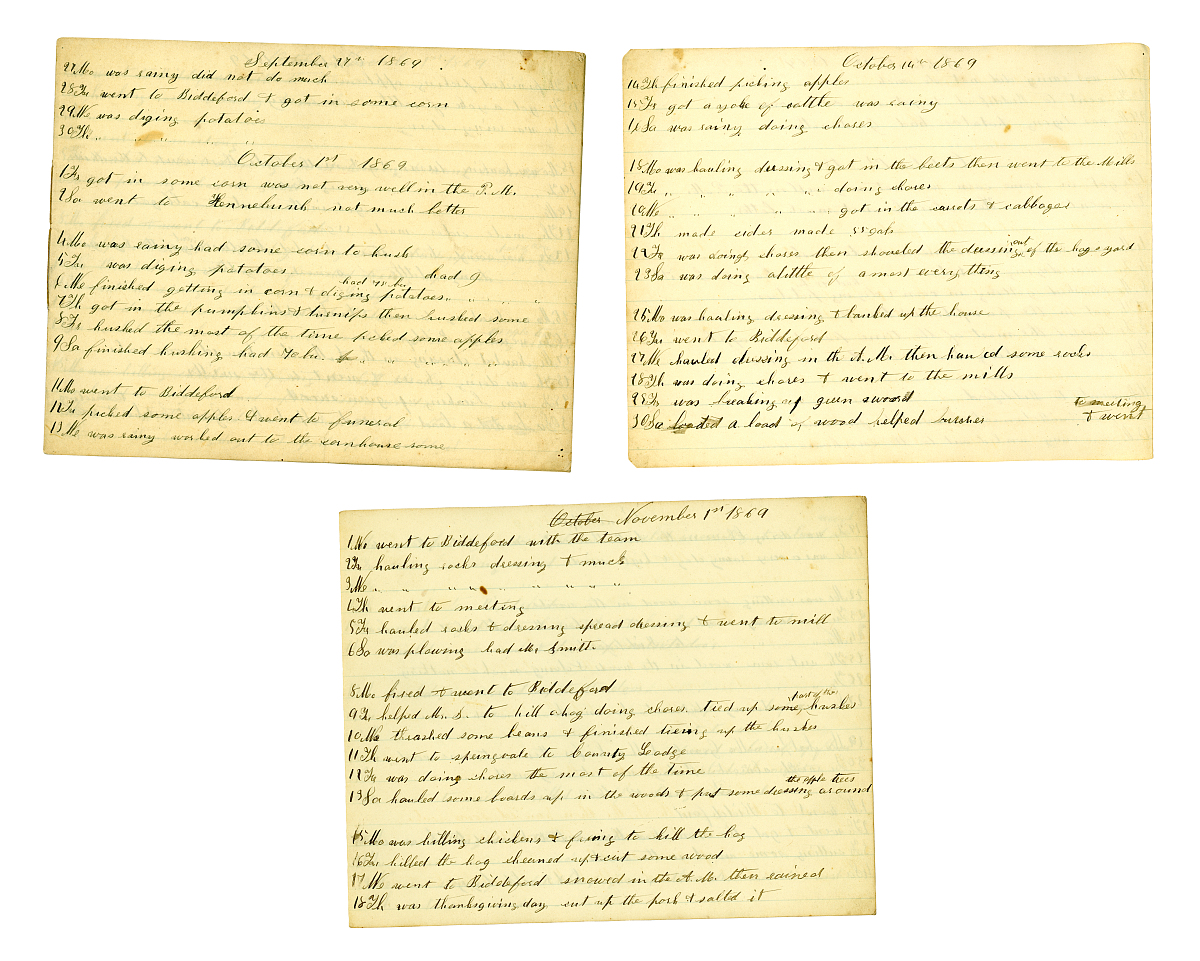 September 27th 1869
27 Mo was rainy did not do much
28 Tu went to Biddeford & got in some corn
29 We was diging potatoes
30 Th " " " "
October 1st 1869
1 Fr got in some corn was not very well in the P.M.
2 Sa went to Kennebunk not much better
4 Mo was rainy had some corn to husk
5 Tu was diging potatoes
6 We finished getting in corn & diging potatoes had 70 bu.
7 Th got in the pumpkins & turnips then husked some
8 Fr husked the most of the time picked some apples
9 Sa finished husking had 70 bu. " " " "
11 Mo went to Biddeford
12 Tu picked some apples & went to funeral
13 We was rainy worked out to the cornhouse some
October 14th 1869
14 Th finished picking apples
15 Fr got a yoke of cattle was rainy
16 Sa was rainy doing chores
18 Mo was hauling dressing & got in the beets then went to the Mills
19 Tu " " " " " doing chores
20 We " " " " " got in the carrots & cabbages
21 Th made cider made 55 gals
22 Fr was doing chores then shoveled the dressing out of the hogs yard
23 Sa was doing alittle of amost everything
25 Mo was hauling dressing & banked up the house
26 Tu went to Biddeford
27 We hauled dressing in the A.M. then hauled some rocks
28 Th was doing chores & went to the mills
29 Fr was breaking up green sword
30 Sa loaded a load of wood helped butcher & went to meeting
October November 1st 1869
1 Mo went to Biddeford with the team
2 Tu hauling rocks dressing & muck
3 We " " " " " " " "
4 Th went to meeting
5 Fr hauled rocks & dressing spread dressing & went to mill
6 Sa was plowing had Mr Smith
8 Mo fixed & went to Biddeford
9 Tu helped Mr. S. to kill a hog doing chores tied up some part of the huskes
10 We thrashed some beans & finished tieing up the huskes
11 Th went to springvale to County Lodge
12 Fr was doing chores the most of the time
13 Sa hauled some boards up in the woods & put some dressing around the apple trees
15 Mo was killing chickens & fixing to kill the hog
16 Tu killed the hog cleaned up & cut some wood
17 We went to Biddeford snowed in the A.M. then rained
18 Th was thanksgiving day cut up the pork & salted it